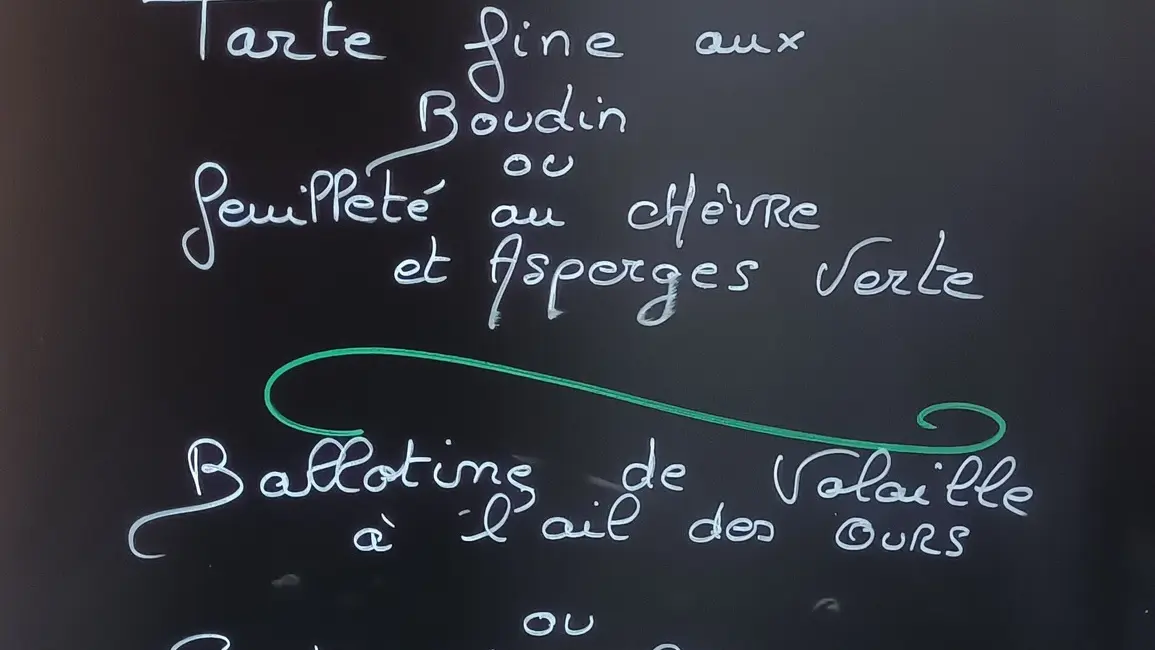 Tarte fine aux
Boudin
ou
feuilleté au chèvre
et Asperges verte
Ballotins de Volaille
à l'ail des ours
ou